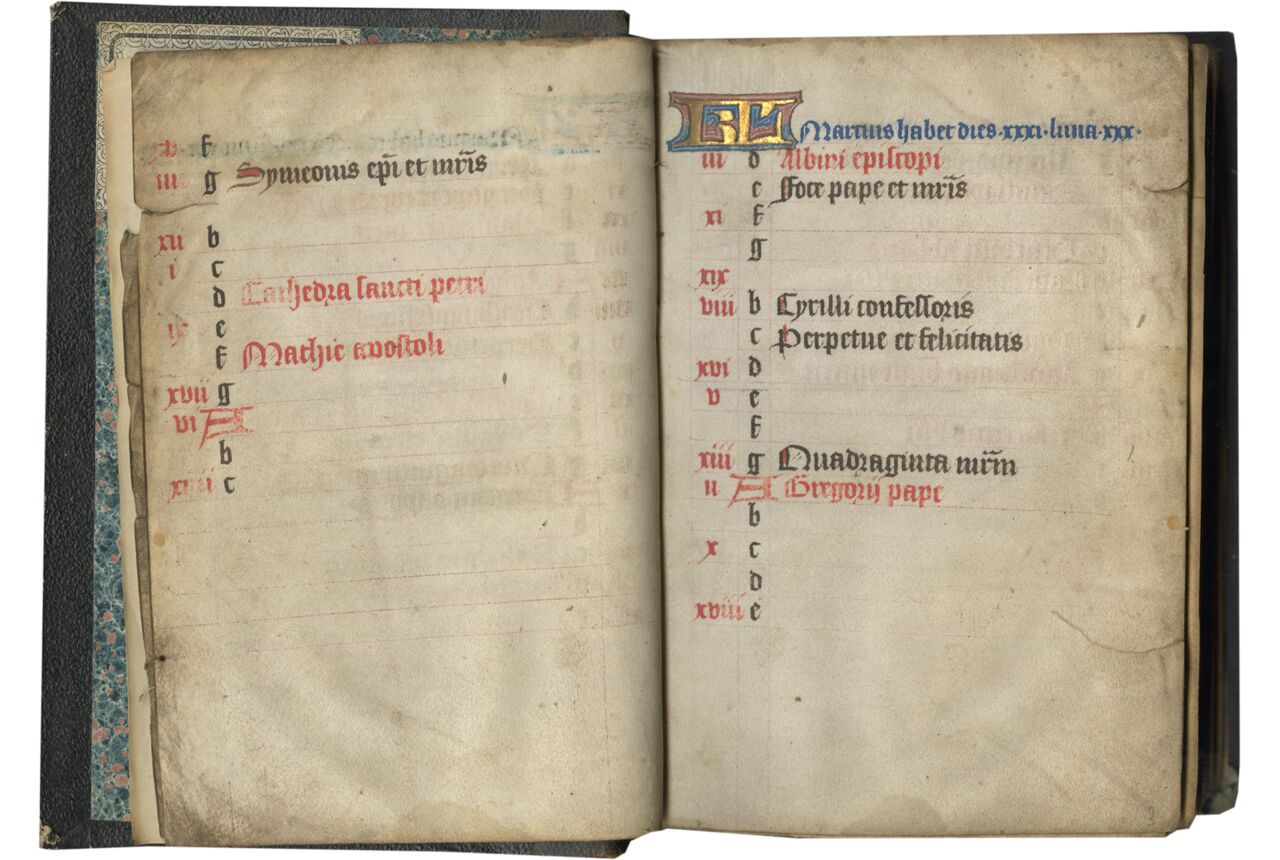 f
iii g Symeonis epi et mris
xii b
i c
d Cathedra sancti petri
ix e
f Mathie apostoli
xvii g
vi A
b
xiiii c
KL Marcius habet dies · xxxi · luna · xxx ·
iii d Albini episcopi
e Foce pape et mris
xi f
g
xix
viii b Cyrilli confessoris
c Perpetue et felicitatis
xvi d
v e
f
xiii g Quadraginta mrm
ii A Gregorij pape
b
x c
d
xviii e
3